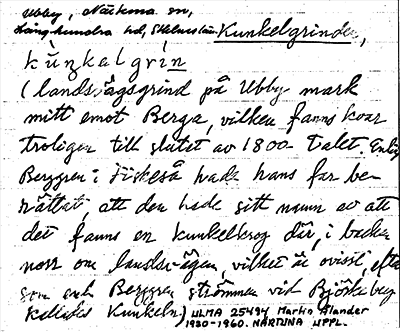 Ubby, Närtuna sn,
Långhundra hd, Stockholms län Kunkelgrinden,
kùŋkalgrin
(landsvägsgrind på Ubby mark
mitt emot Berga, vilken fanns kvar
troligen till slutet av 1800-talet. Enligt
Berggren i Fiskeså hade hans far be-
rättat, att den hade sitt namn av att
det fanns en kunkelkrog där, i backen
norr om landsvägen, vilket är ovisst, efter-
som enl. Berggren strömmen vid Björkeberg
kallades Kunkeln.) ULMA 25494 Martin Ålander
1930-1960. NÄRTUNA UPPL.